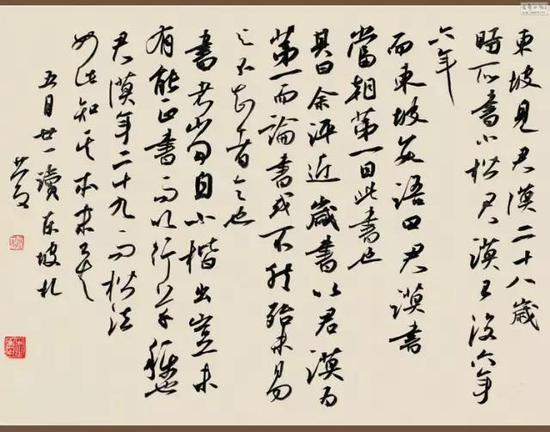 東坡見君謨二十八歲
時所書小楷君謨已没六年
六年
而東坡 語曰君謨書
當朝第一曰此書也
其曰余評近歲書以君謨為
第一而論書或不然殆未易
与不知者言也
書者當自小楷出豈未
有能正書而以行草稱也
君謨年二十九而楷法
如此知其本末矣
五月廿一讀東坡札